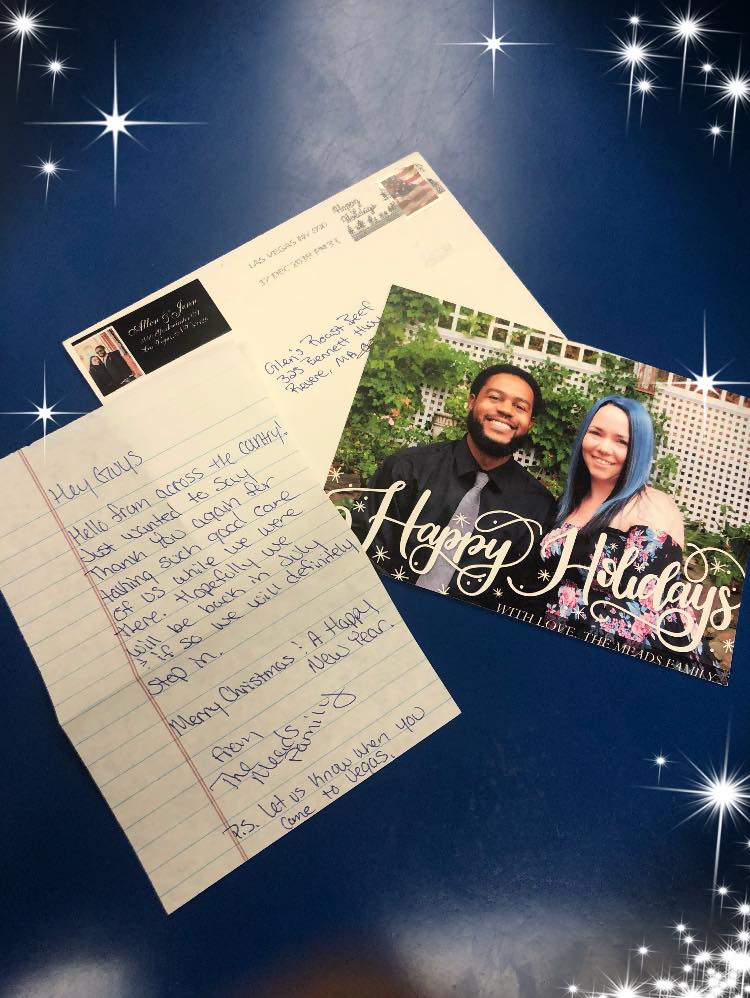 Happy
Holidays
LAS VEGAS NV 890
17 DEC 2019 PM 3 L
Allen & Jenn
Las Vegas, NV
Glen's Roast Beef
325 Bennett Hwy
Revere, MA
Hey Guys
Hello from across the cantry!
Just wanted to say
Thank you again for
taking such good care
of us while we were
there. Hopefully we
will be back in July
if so we will definitely
stop in.
Merry Christmas & A Happy
New Year.
From
The Meads
Family
P.S. Let us know when you
come to Vegas.
Happy Holidays
WITH LOVE, THE MEADS FAMILY